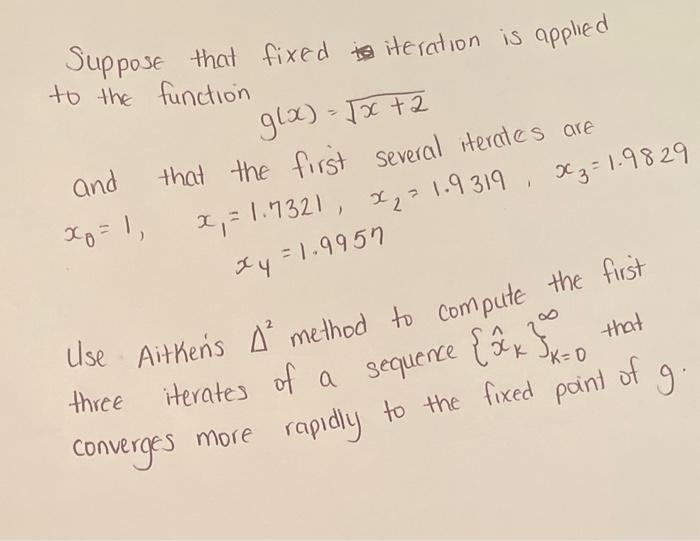 Suppose that fixed iteration is applied
to the function
g(x) = √x + 2
and that the first several iterates are
x₀ = 1, x₁ = 1.7321, x₂ = 1.9319, x₃ = 1.9829
x₄ = 1.9957
Use Aitken's Δ² method to compute the first
three iterates of a sequence {x̂ₖ}∞ₖ₌₀ that
converges more rapidly to the fixed point of g.